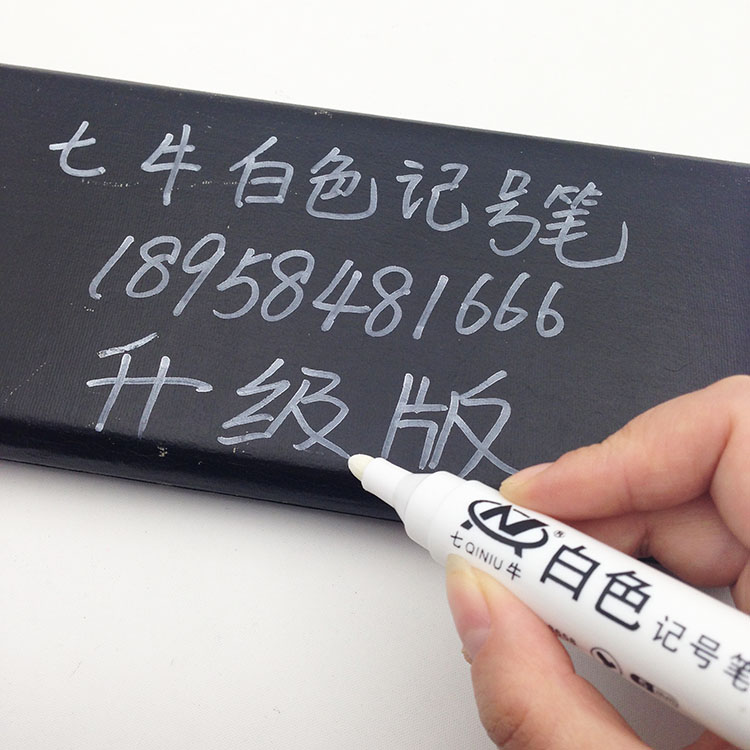 七牛白色记号笔
18958481666
升级版
七QINIU牛
白色记号笔